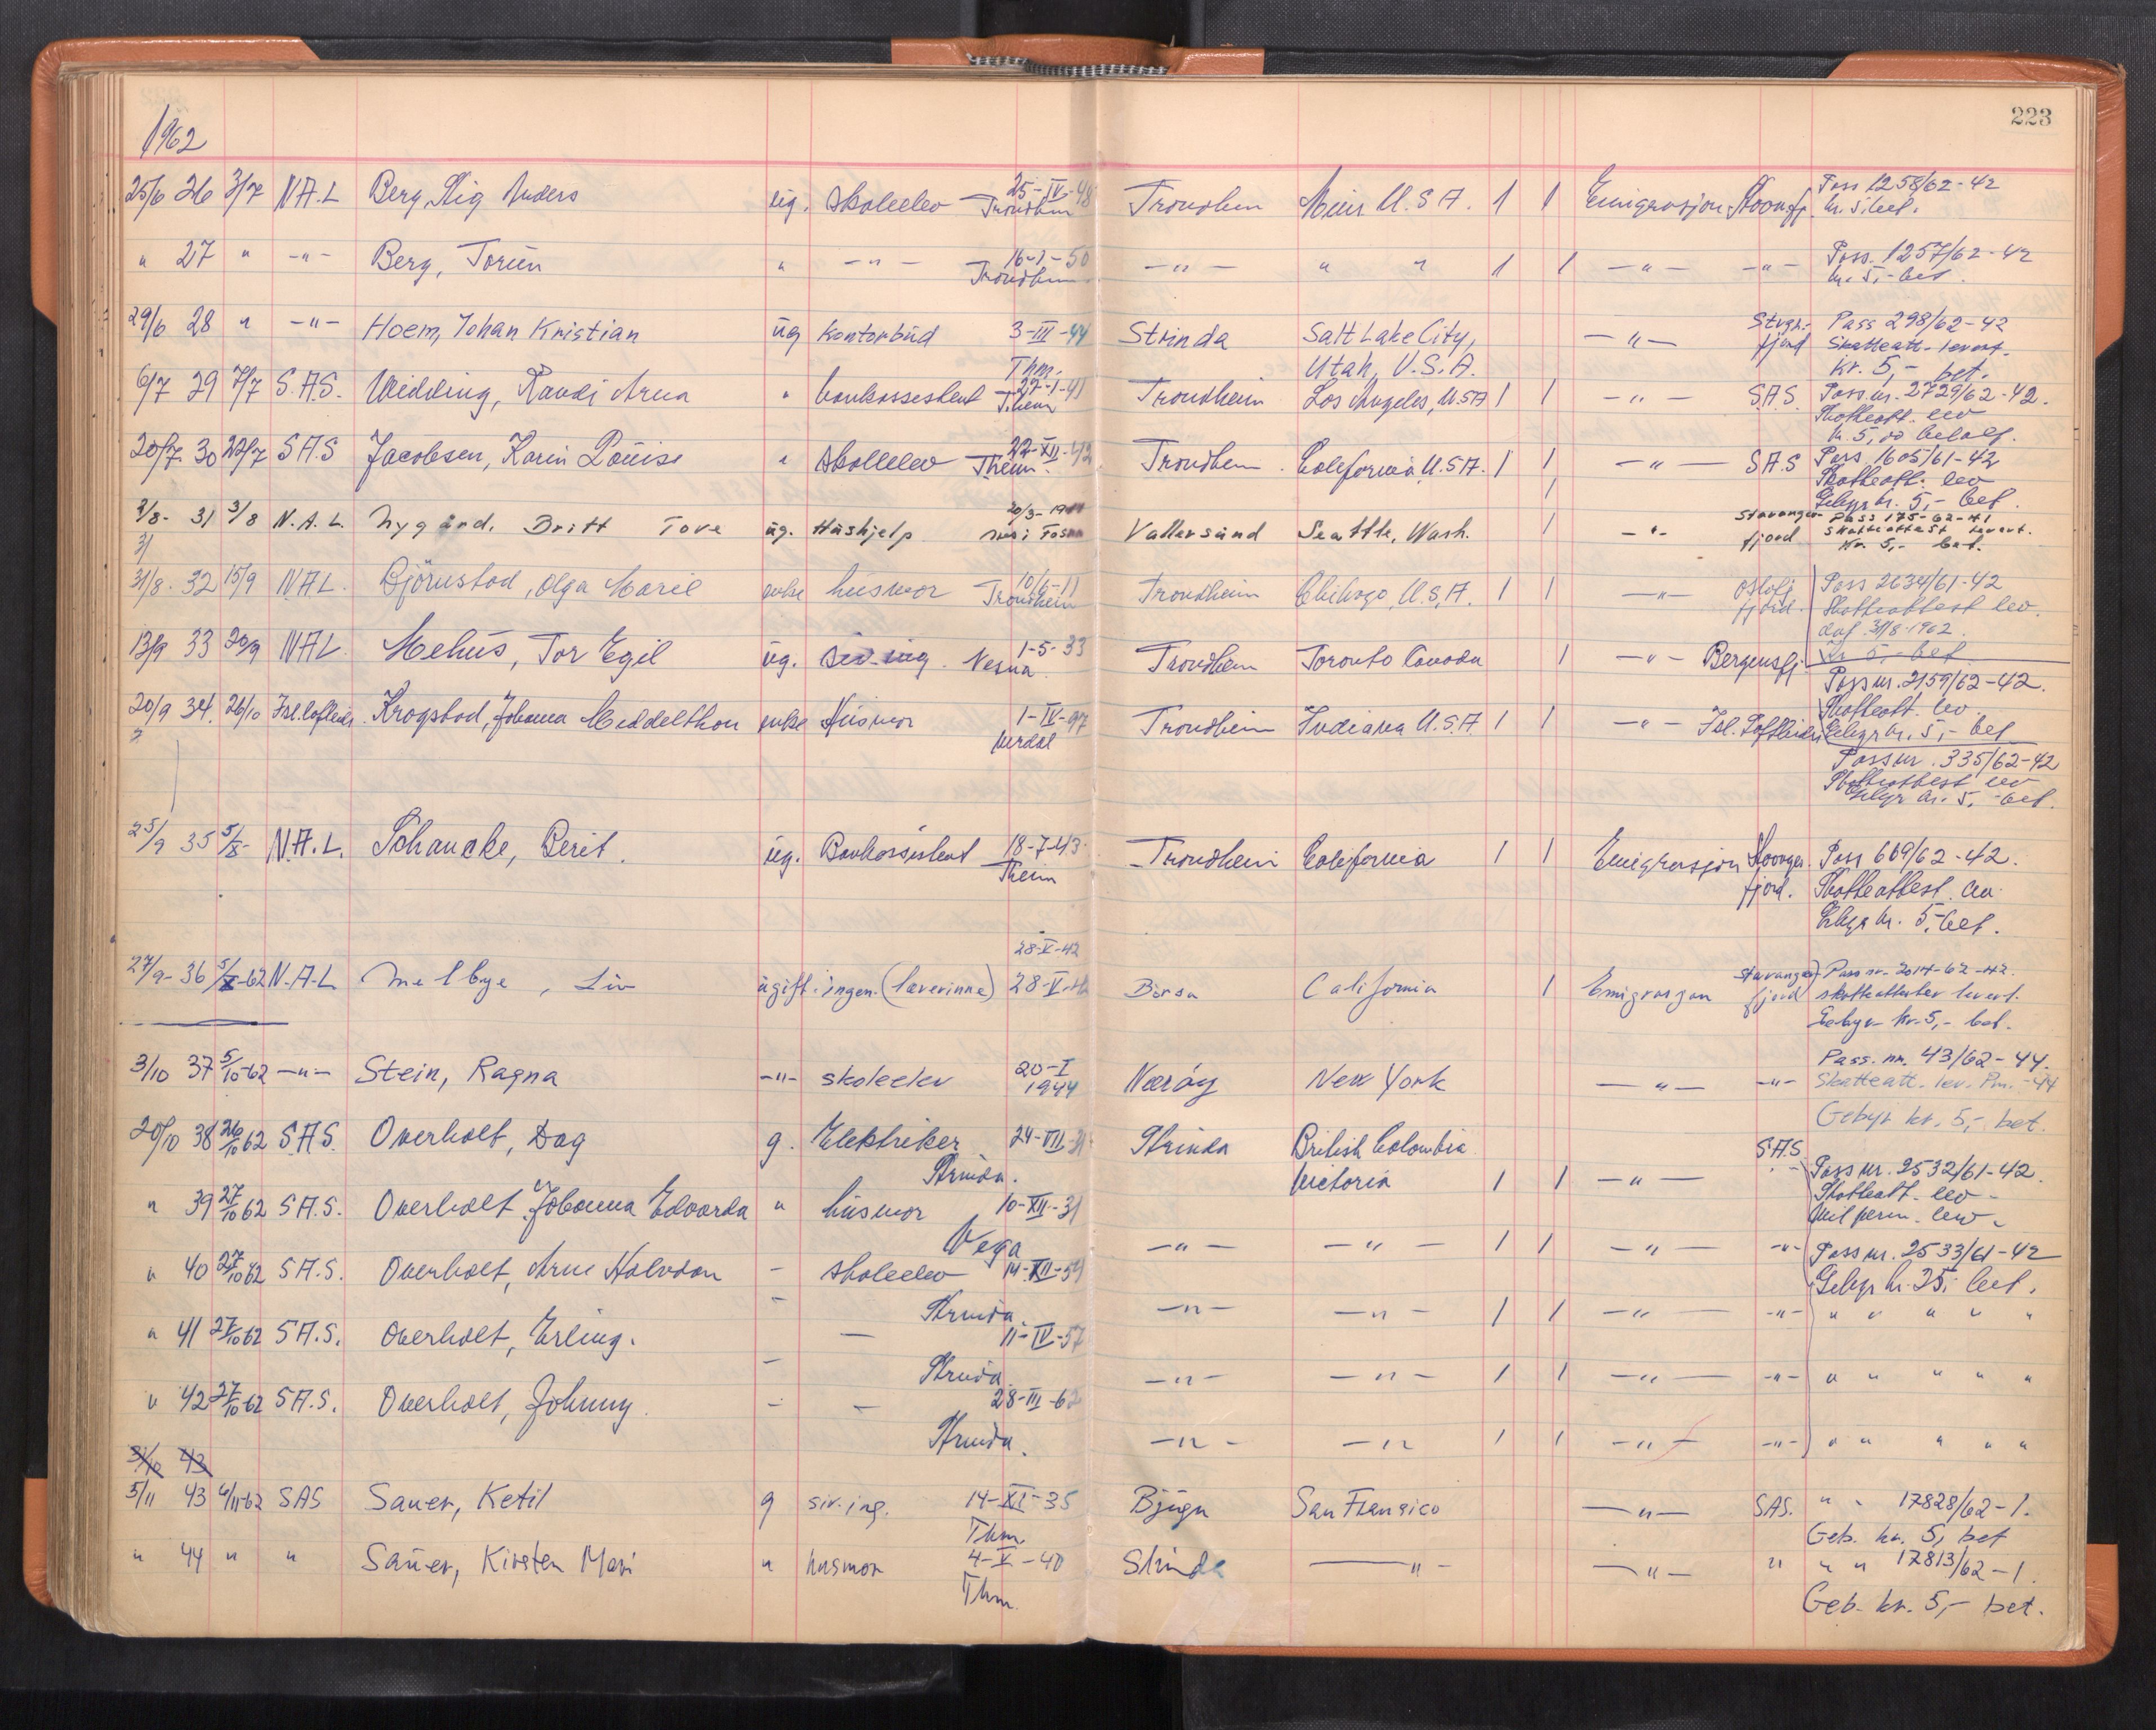 223
1962
25/6 26 3/7 N.A.L Berg, Stig Anders ug. skoleelev 25-IV-48 Trondheim U.S.A. 1 1 Emigrasjon Pass 1258/62-42
Trondhm kr. 5. bet.
" 27 " -"- Berg, Torün " -"- 16-1-50 -"- " " 1 1 -"- -"- Pass. 1257/62-42
Trondhm kr. 5,- bet.
29/6 28 " -"- Hoem, Johan Kristian üg kontorbüd 3-III-44 Strinda Salt Lake City, -"- Stvgr.- Pass 298/62-42
Thm. Utah, U.S.A. fjord Skatteatt. levert.
Kr. 5,- bet.
6/7 29 7/7 S.A.S. Widding, Randi Arna " bankassistent 27-1-41 Trondheim Los Angeles, USA 1 1 -"- S.A.S. Pass. nr. 2729/62-42.
Them Skatteatt. lev
kr. 5,00 betalt.
20/7 30 22/7 S.A.S Jacobsen, Karin Loüise " skoleelev 22-XII-42 Trondheim California, U.S.A. 1 1 -"- S.A.S Pass. 1605/61-42
Them. Skatteatt. lev
Gebyr kr. 5,- bet.
2/8- 31 3/8 N.A.L. Nygård, Britt Tove üg. Hüshjelp 20/3-19 Vallersünd Seattle, Wash. 1 -"- Stavanger- Pass 175-62-41
fjord Skatteattest levert.
Kr. 5,- bet.
31/8. 32 15/9 N.A.L. Björnstad, Olga Marie enke hüsmor 10/6-11 Trondheim Chikago, U.S.A. 1 1 -"- Oslofj Pass 2634/61-42
Trondheim fjord. Skatteattest lev.
dat. 31/8-1962.
kr 5,- bet
13/9 33 20/9 NAL. Mehüs, Tor Egil üg. siv.ing. 1-5-33 Trondheim Toronto Canada 1 -"- Bergensfj.
Nesna Pass nr. 2159/62-42.
Skatteatt. lev.
Gebyr kr. 5,- bet
20/9 34. 26/10 Isl. Loftleidir Krogstad, Johanna Middelthon enke Hüsmor 1-IV-97 Trondheim Indiana U.S.A 1 1 -"- Isl. Loftleidir
Verdal Pass nr. 335/62-42
Skatteattest lev
Gebyr kr. 5,- bet.
25/9 35 5/X- N.A.L. Schancke, Berit. üg. Bankassistent 18-7-43 Trondheim California 1 1 Emigrasjon Stavanger Pass 669/62-42.
Them fjord. Skatteattest lev.
Gebyr kr. 5,- bet.
28-V-42
27/9- 36 5/X-62 N.A.L Melbye, Liv ügift ingen (lærerinne) 28-V-42 Börsa California 1 Emigrasjon Stavanger Pass nr. 2014-62-42.
fjord skatteattester levert.
Gebyr kr. 5,- bet.
3/10 37 5/10-62 -"- Stein, Ragna -"- skoleelev 20-I Nærøy New York -"- -"- Pass. nr. 43/62-44.
1944 Skatteatt. lev. Pm.-44
Gebyr kr. 5,- bet.
20/10 38 26/10 62 S.A.S. Overholt, Dag g. Elektriker 24-VII-31 Strinda British Colombia S.A.S.
Strinda. Victoria 1 1 -"- Pass nr. 2532/61-42.
Skatteatt. lev-
Mil perm. lev.
" 39 27/10 62 S.A.S. Overholt, Johanna Edvarda " hüsmor 10-XII-31
Vega -"- -"- 1 1 -"- -"- Pass nr. 2533/61-42
Gebyr kr. 25,- bet.
" 40 27/10 62 S.A.S. Overholt, Arne Halvdan - skoleelev 14-XII-54
Strinda. -"- -"- 1 1 -"- -"- " " " " "
" 41 27/10-62 S.A.S. Overholt, Erling. - — 11-IV-57
Strinda -"- -"- 1 1 -"- -"- " " " " "
" 42 27/10-62 S.A.S. Overholt, Johnny. - — 28-III-62
Strinda. -"- -"- 1 1 -"- -"- " " " " "
31/10 43
5/11 43 6/11-62 SAS Saüer, Ketil g siv.ing. 14-XI-35 Bjügn San Fransico -"- SAS. " " 17828/62-1.
Thm. Geb. kr. 5, bet
" 44 " " Saüer, Kirsten Mari " husmor 4-V-40 Strinda -"- -"- " " " 17813/62-1.
Thm. Geb. kr. 5,- bet.